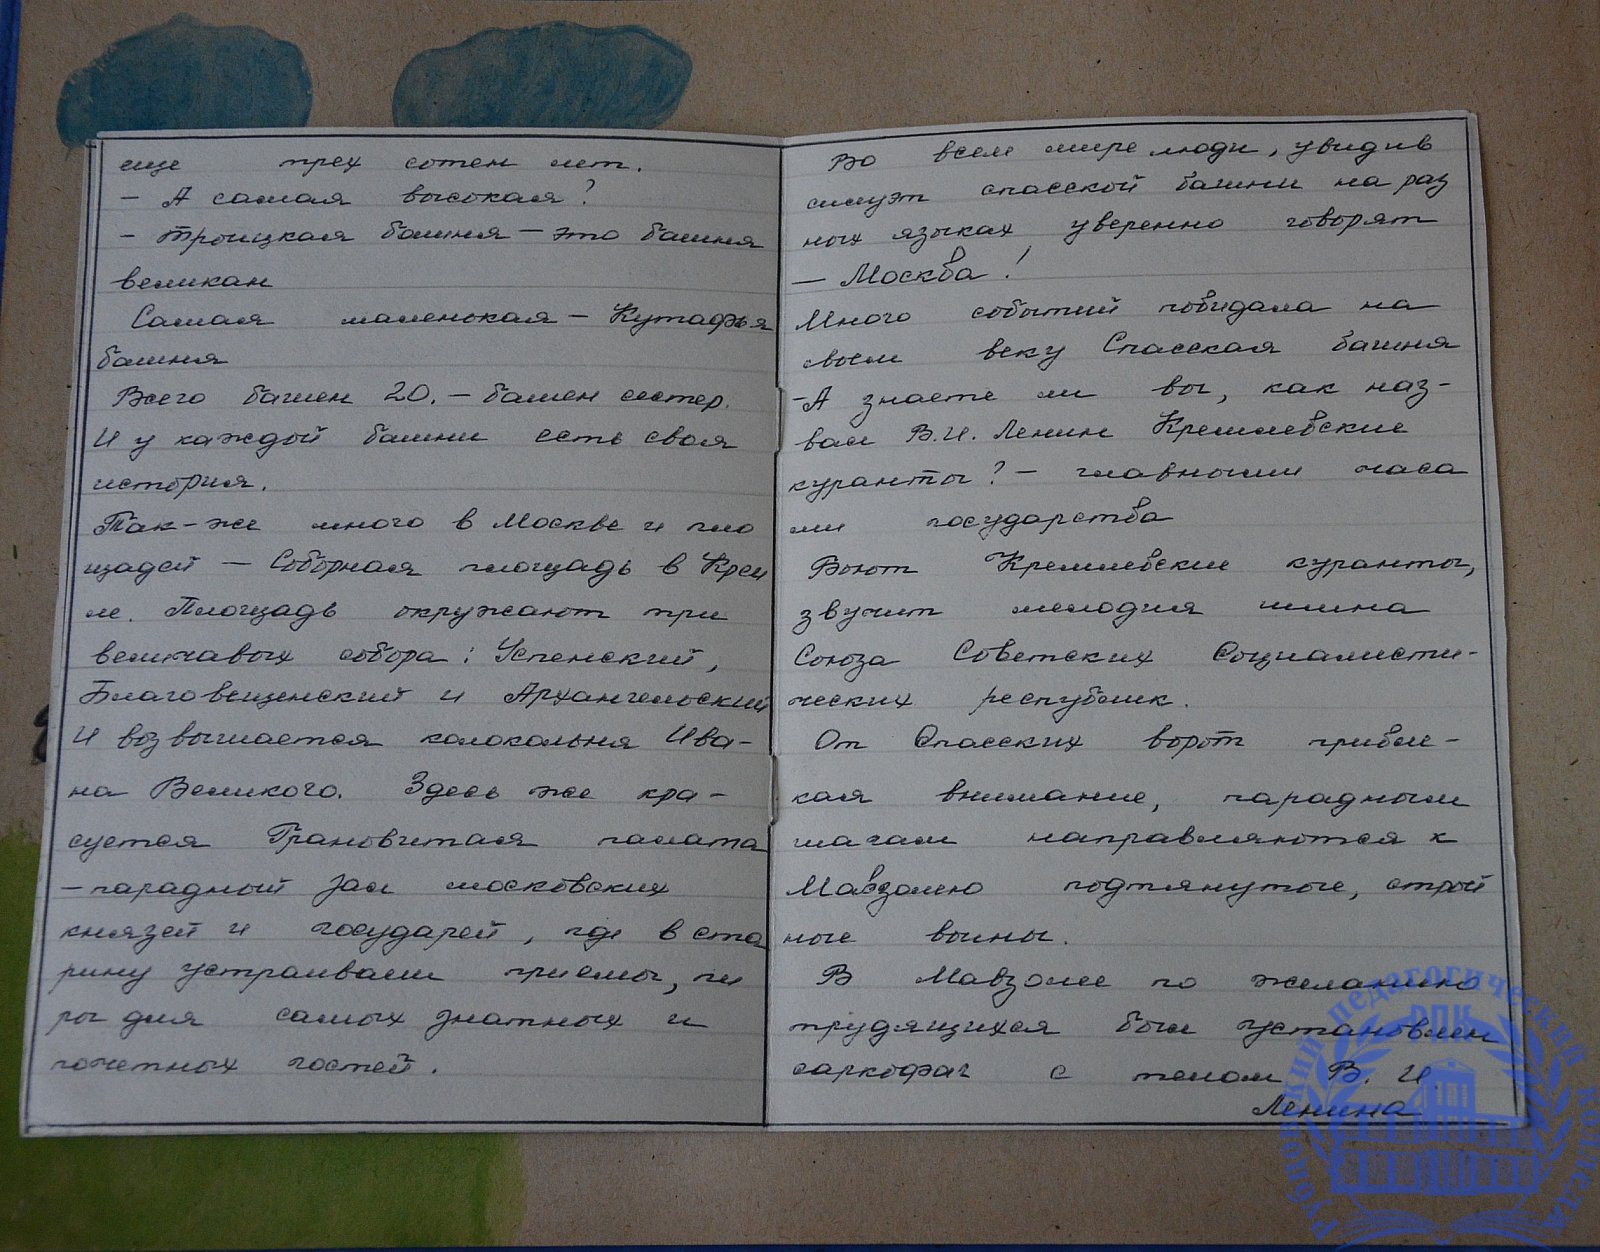 еще трех сотен лет.
- А самая высокая?
- Троицкая башня - это башня
великан
Самая маленькая - Кутафья
башня
Всего башен 20. - башен сестер.
И у каждой башни есть своя
история.
Так-же много в Москве и пло
щадей - Соборная площадь в Крем
ле. Площадь окружают три
величавых собора: Успенский,
Благовещенский и Архангельский
И возвышается колокольня Ива-
на Великого. Здесь же кра-
суется Грановитая палата
- парадный зал московских
князей и государей, где в ста
рину устраивали приемы, пи
ры для самых знатных и
почетных гостей.
Во всем мире люди, увидив
силуэт спасской башни на раз
ных языках уверенно говорят
- Москва!
Много событий повидала на
своем веку Спасская башня
- А знаете ли вы, как наз-
вал В.И. Ленин Кремлевские
куранты? - главными часа
ми государства
Бьют Кремлевские куранты,
звучит мелодия гимна
Союза Советских Социалисти-
ческих республик.
От Спасских ворот
внимание, парадным
шагом направляются к
Мавзолею подтянутые, строй
ные воины.
В Мавзолее по желанию
трудящихся был установлен
саркофаг с телом В. И
Ленина
Рубцовский педагогический колледж
РПК